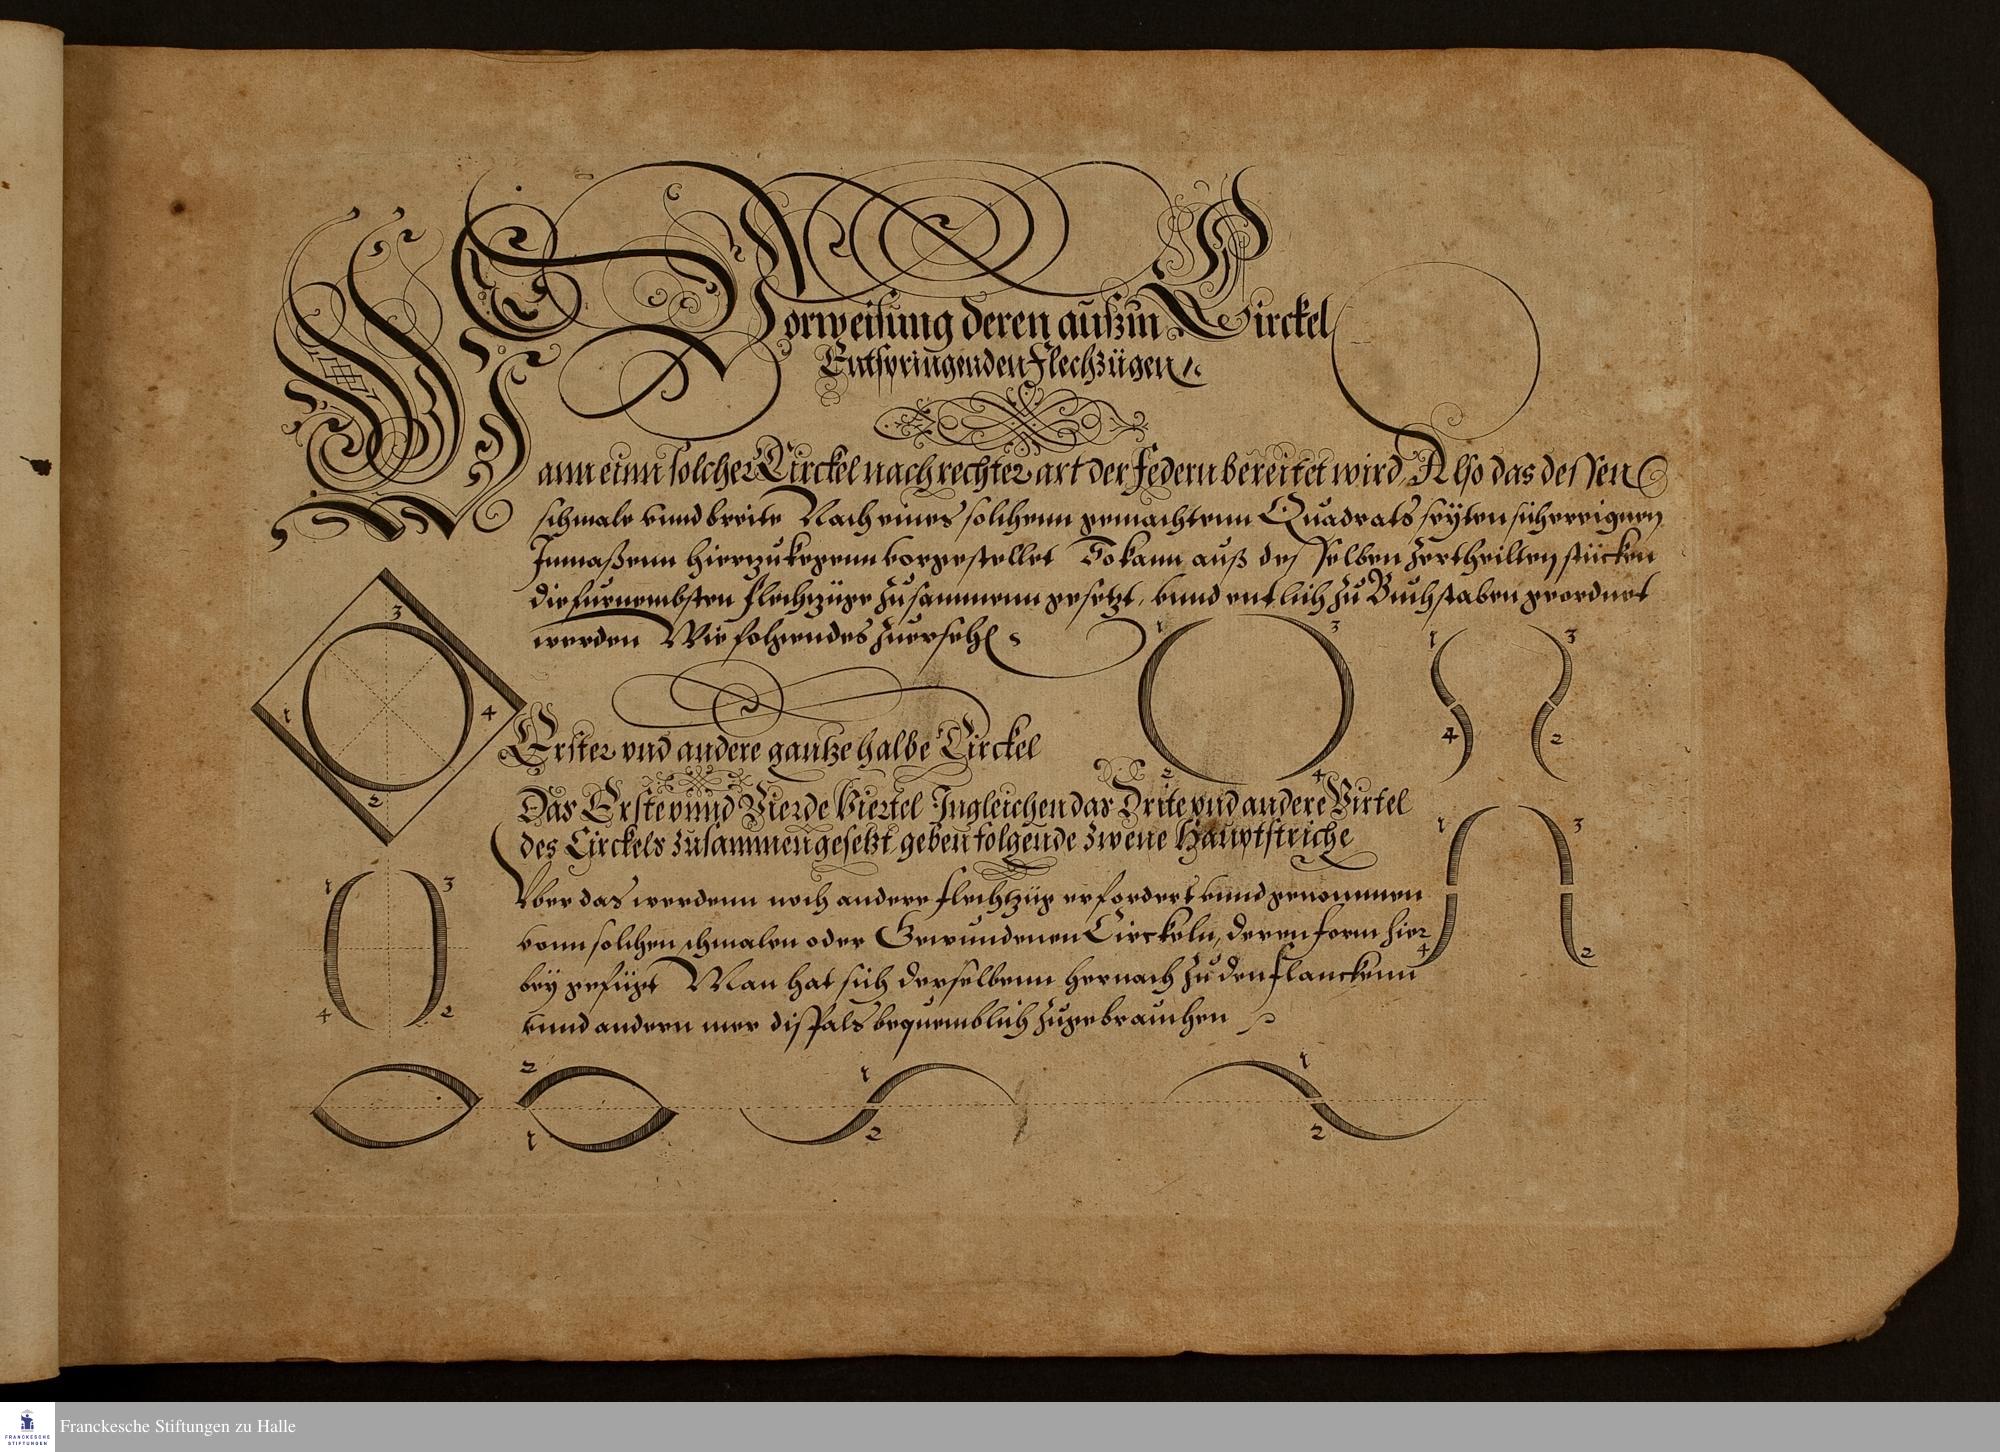 Vorweisung deren außm Circkel
Entspringenden Flechzügen
Wann einn solcher Circkel nach rechter art der Federn bereitet wird, Also das dessen
schmale vnnd breite Nach eines solchenn gemachtenn Quadrats seÿten sich ereignen
Inmaßenn hierzukegenn vorgestellet So kann auß des selben zertheilten stücken
die furnembsten flechzüge zusammenn gesetzt, vnnd entlich zu Buchstaben geordnet
werden Wie folgendes zuersehen
1 3 1 3
3
1 4
4 2
Erster vnd andere gantze halbe Circkel
2 4
2
Das Erste vnnd Vierde Viertel Ingleichen das Drite vnd andere Virtel
1 3
des Circkels zusammen gesetzt, geben folgende zwene Hauptstriche
1 3
Vber das werdenn noch andere flechzüg erfordert vnnd genommen
vonn solchen schmalen oder Gewundenen Circkeln, deren form hier
4 2
beÿ gefügt Man hat sich derselbenn hernach zu den flanckenn
4 2
vnnd andern mer dißfals bequemblich zugebrauchen
2 1 1
1 2 2
Franckesche Stiftungen zu Halle
FRANCKESCHE
STIFTUNGEN